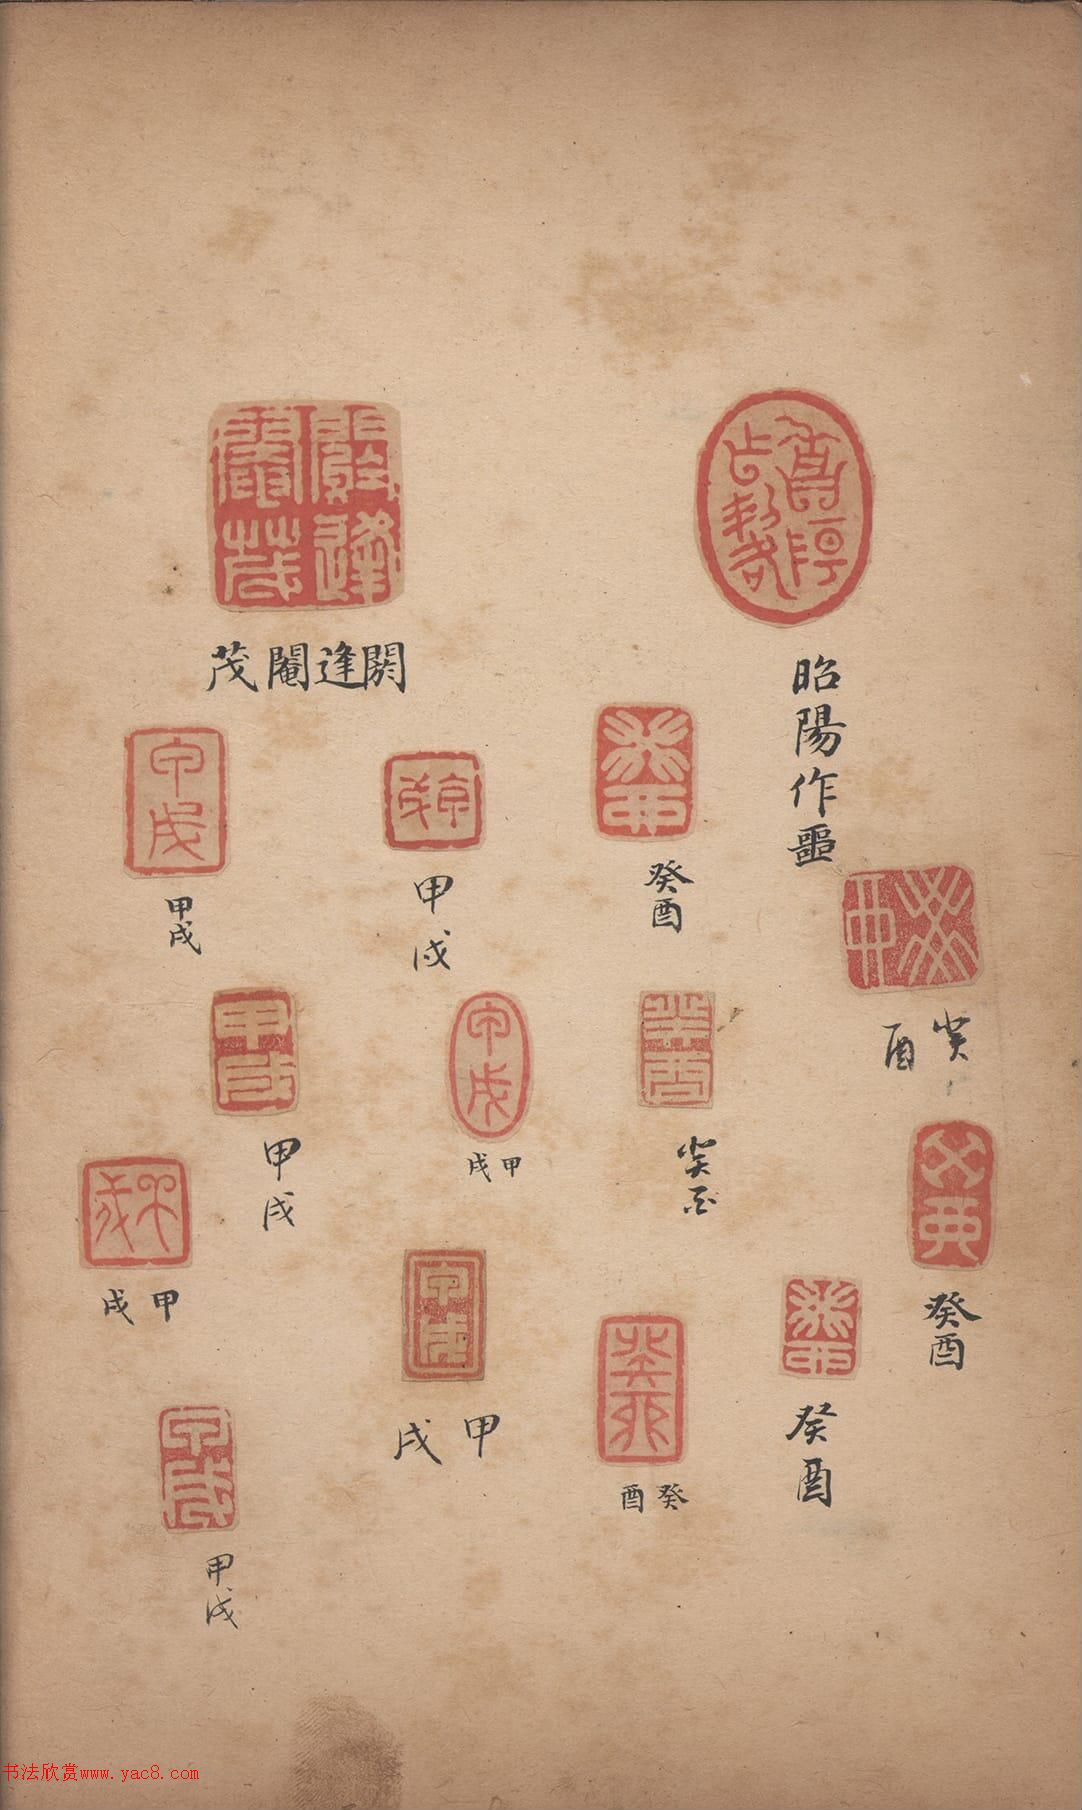 昭陽作噩
癸酉
癸酉
癸酉
癸酉
癸酉
癸酉
閼逢閹茂
甲戌
甲戌
甲戌
甲戌
甲戌
甲戌
甲戌
书法欣赏www.yac8.com